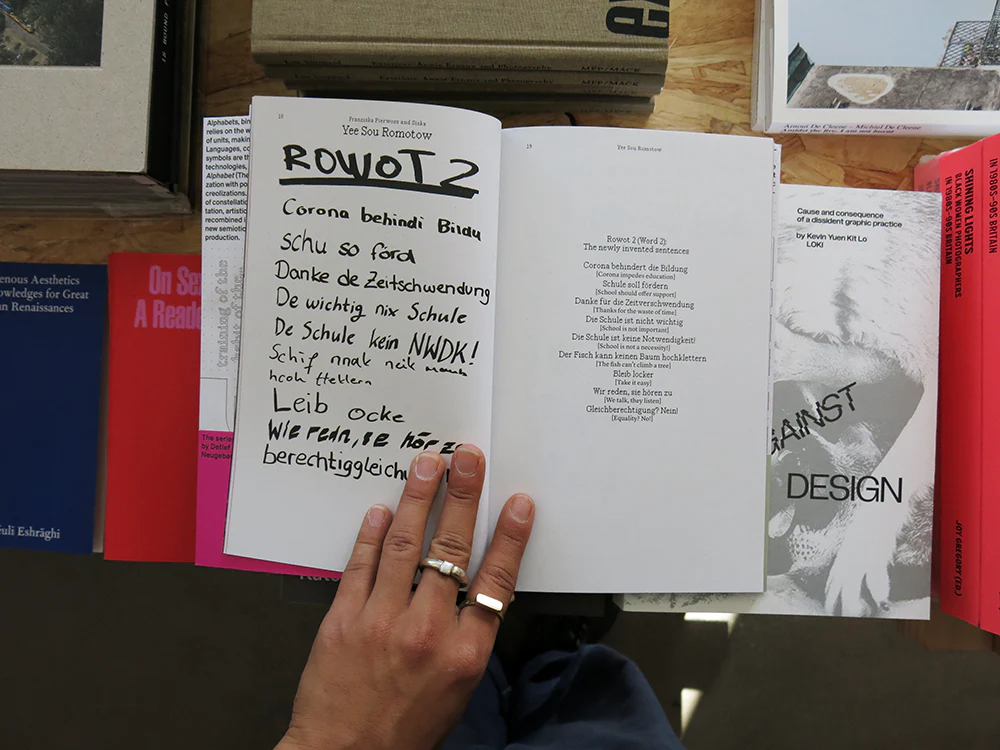 18
Franziska Pierwoss and Siska
Yee Sou Romotow
ROWOT 2
Corona behindi Bildu
schu so förd
Danke de Zeitschwendung
De wichtig nix Schule
De Schule kein NWDK!
Schif nnak neik
hcoh ttetlern
Leib ocke
Wie redn, se hör
berechtiggleich
19
Yee Sou Romotow
Rowot 2 (Word 2):
The newly invented sentences
Corona behindert die Bildung
[Corona impedes education]
Schule soll fördern
[School should offer support]
Danke für die Zeitverschwendung
[Thanks for the waste of time]
Die Schule ist nicht wichtig
[School is not important]
Die Schule ist keine Notwendigkeit!
[School is not a necessity!]
Der Fisch kann keinen Baum hochklettern
[The fish can't climb a tree]
Bleib locker
[Take it easy]
Wir reden, sie hören zu
[We talk, they listen]
Gleichberechtigung? Nein!
[Equality? No!]
Alphabets, bin
relies on the w
of units, makin
Languages, co
symbols are th
technologies,
Alphabet (The
zation with po
creolizations.
of constellatic
tation, artistic
recombined i
new semiotic
production.
training of the
The series
by Detlef
Neugebo
enous Aesthetics
owledges for Great
an Renaissances
éuli Eshrāghi
On Sex
A Reade
MPP/MACK
Arnout De Cleene – Michiel De Cleene
Amidst the fire, I am not burnt
Cause and consequence
of a dissident graphic practice
by Kevin Yuen Kit Lo
LOKI
GAINST
DESIGN
SHINING LIGHTS
BLACK WOMEN PHOTOGRAPHERS
IN 1980S–90S BRITAIN
JOY GREGORY (ED.)
IN 1980S–90S BRITAIN